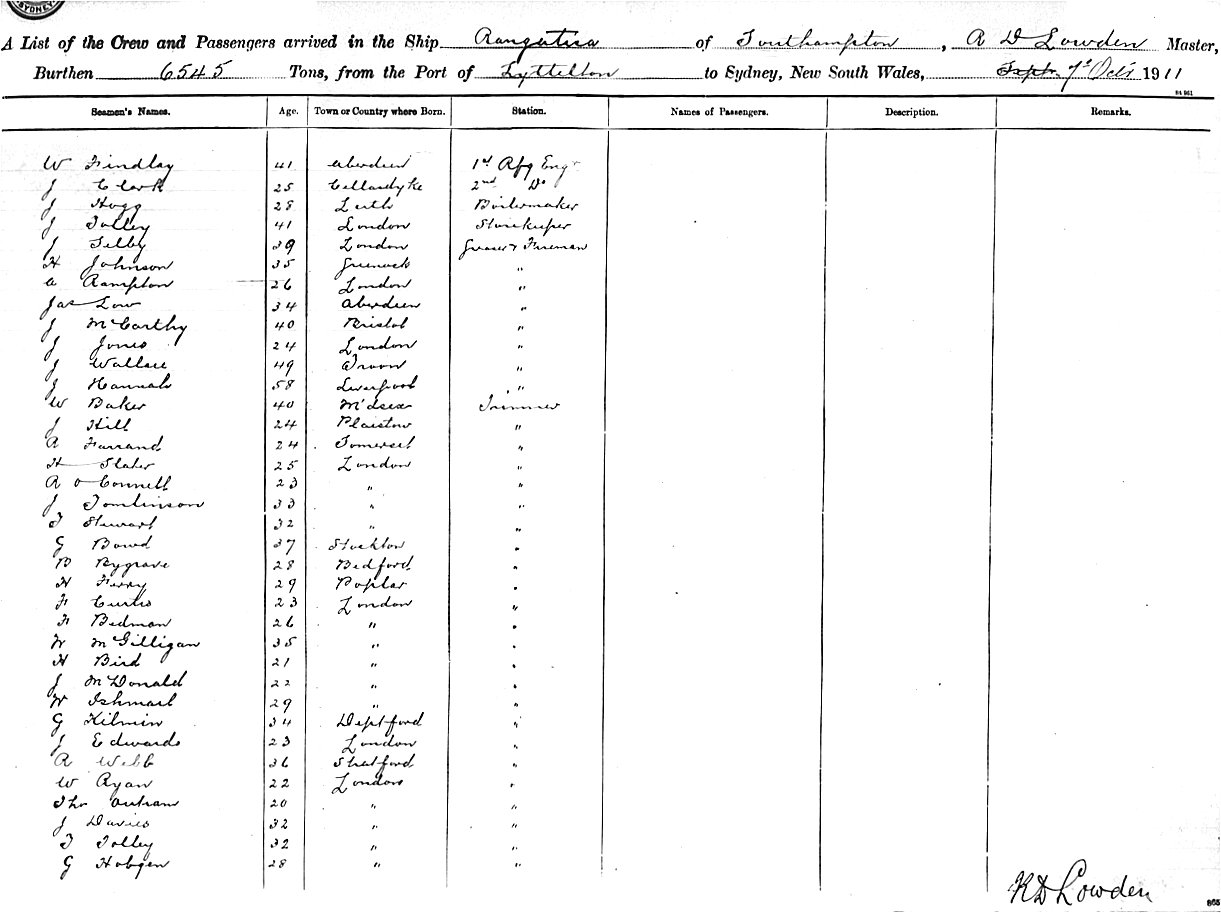 SYDNEY
A List of the Crew and Passengers arrived in the Ship Rangatira of Southampton, R D Lowden Master,
Burthen 6545 Tons, from the Port of Lyttelton to Sydney, New South Wales, Sept. 7th Oct 1911
84 961
Seamen's Names. Age. Town or Country where Born. Station. Names of Passengers. Description. Remarks.
W Findlay 41 Aberdeen 1st Rfg Engr
J Clark 25 Cellardyke 2nd Do
J Hogg 28 Leith Boilermaker
J Tolley 41 London Storekeeper
J Selby 39 London Greaser & Fireman
H Johnson 35 Greenock "
A Rampton 26 London "
Jas Low 34 Aberdeen "
J McCarthy 40 Bristol "
J Jones 24 London "
J Wallace 49 Troon "
J Hannah 58 Liverpool "
W Baker 40 M'dsex Trimmer
J Hill 24 Plaistow "
R Farrand 24 Somerset "
H Slater 25 London "
R O Connell 23 " "
J Tomlinson 33 " "
T Stewart 32 " "
G Bowd 37 Stockton "
B Bygrave 28 Bedford "
H Ferry 29 Poplar "
F Curtis 23 London "
F Bedman 26 " "
W McGilligan 35 " "
H Bird 21 " "
J McDonald 22 " "
W Ishmael 29 " "
G Kilmin 34 Deptford "
J Edwards 23 London "
R Webb 36 Stratford "
W Ryan 22 London "
Thos Outram 20 " "
J Davies 32 " "
T Tolley 32 " "
G Hobgen 28 " "
RD Lowden
865